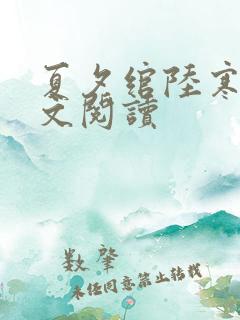 夏夕綰陸寒
文閱讀
数肇
未任同意禁止轉載